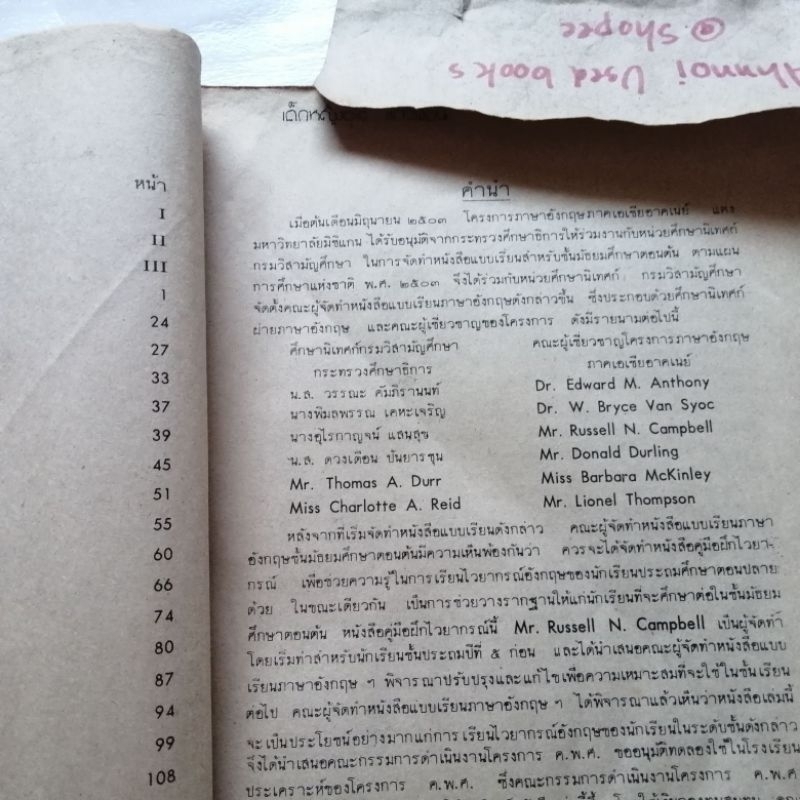 Ahnnoi Used books
@Shopee
หน้า
I
II
III
1
24
27
33
37
39
45
51
55
60
66
74
80
87
94
99
108
คำนำ
เมื่อต้นเดือนมิถุนายน ๒๕๐๓ โครงการภาษาอังกฤษภาคเอเซียอาคเนย์ แห่ง
มหาวิทยาลัยมิชิแกน ได้รับอนุมัติจากกระทรวงศึกษาธิการให้ร่วมงานกับหน่วยศึกษานิเทศก์
กรมวิสามัญศึกษา ในการจัดทำหนังสือแบบเรียนสำหรับชั้นมัธยมศึกษาตอนต้น ตามแผน
การศึกษาแห่งชาติ พ.ศ. ๒๕๐๓ จึงได้ร่วมกับหน่วยศึกษานิเทศก์ กรมวิสามัญศึกษา
จัดตั้งคณะผู้จัดทำหนังสือแบบเรียนภาษาอังกฤษดังกล่าวขึ้น ซึ่งประกอบด้วยศึกษานิเทศก์
ฝ่ายภาษาอังกฤษ และคณะผู้เชี่ยวชาญของโครงการ ดังมีรายนามต่อไปนี้
ศึกษานิเทศก์กรมวิสามัญศึกษา
กระทรวงศึกษาธิการ
น.ส. วรรณะ คัมภิรานนท์
นางพิมลพรรณ เคหะเจริญ
นางอุไรกาญจน์ แสนสุข
น.ส. ดวงเดือน บันยารชุน
Mr. Thomas A. Durr
Miss Charlotte A. Reid
คณะผู้เชี่ยวชาญโครงการภาษาอังกฤษ
ภาคเอเชียอาคเนย์
Dr. Edward M. Anthony
Dr. W. Bryce Van Syoc
Mr. Russell N. Campbell
Mr. Donald Durling
Miss Barbara McKinley
Mr. Lionel Thompson
หลังจากที่เริ่มจัดทำหนังสือแบบเรียนดังกล่าว คณะผู้จัดทำหนังสือแบบเรียนภาษา
อังกฤษชั้นมัธยมศึกษาตอนต้นมีความเห็นพ้องกันว่า ควรจะได้จัดทำหนังสือคู่มือฝึกไวยา-
กรณ์ เพื่อช่วยความรู้ในการเรียนไวยากรณ์อังกฤษของนักเรียนประถมศึกษาตอนปลาย
ด้วย ในขณะเดียวกัน เป็นการช่วยวางรากฐานให้แก่นักเรียนที่จะศึกษาต่อในชั้นมัธยม
ศึกษาตอนต้น หนังสือคู่มือฝึกไวยากรณ์นี้ Mr. Russell N. Campbell เป็นผู้จัดทำ
โดยเริ่มทำสำหรับนักเรียนชั้นประถมปีที่ ๕ ก่อน และได้นำเสนอคณะผู้จัดทำหนังสือแบบ
เรียนภาษาอังกฤษ ฯ พิจารณาปรับปรุงและแก้ไขเพื่อความเหมาะสมที่จะใช้ในชั้นเรียน
ต่อไป คณะผู้จัดทำหนังสือแบบเรียนภาษาอังกฤษ ฯ ได้พิจารณาแล้วเห็นว่าหนังสือเล่มนี้
จะเป็นประโยชน์อย่างมากแก่การเรียนไวยากรณ์อังกฤษของนักเรียนในระดับชั้นดังกล่าว
จึงได้นำเสนอคณะกรรมการดำเนินงานโครงการ ค.พ.ศ. ขออนุมัติทดลองใช้ในโรงเรียน
ประเคราะห์ของโครงการ ค.พ.ศ. ซึ่งคณะกรรมการดำเนินงานโครงการ ค.พ.ศ.